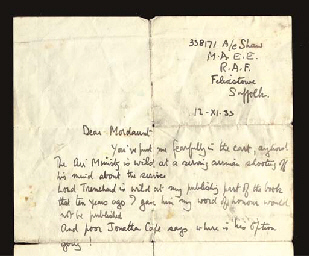 338171 A/c Shaw
M.A.E.E.
R.A.F.
Felixstowe
Suffolk.
12-XI-33
Dear Mordaunt
You've put me fearfully in the cart, anyhow!
The Air Ministry is wild, at a serving airman shooting off
his mind about the service
Lord Trenchard is wild at my publishing part of the book
that ten years ago I gave him my word of honour would
not be published
And poor Jonathan Cape says where is his option
gone!